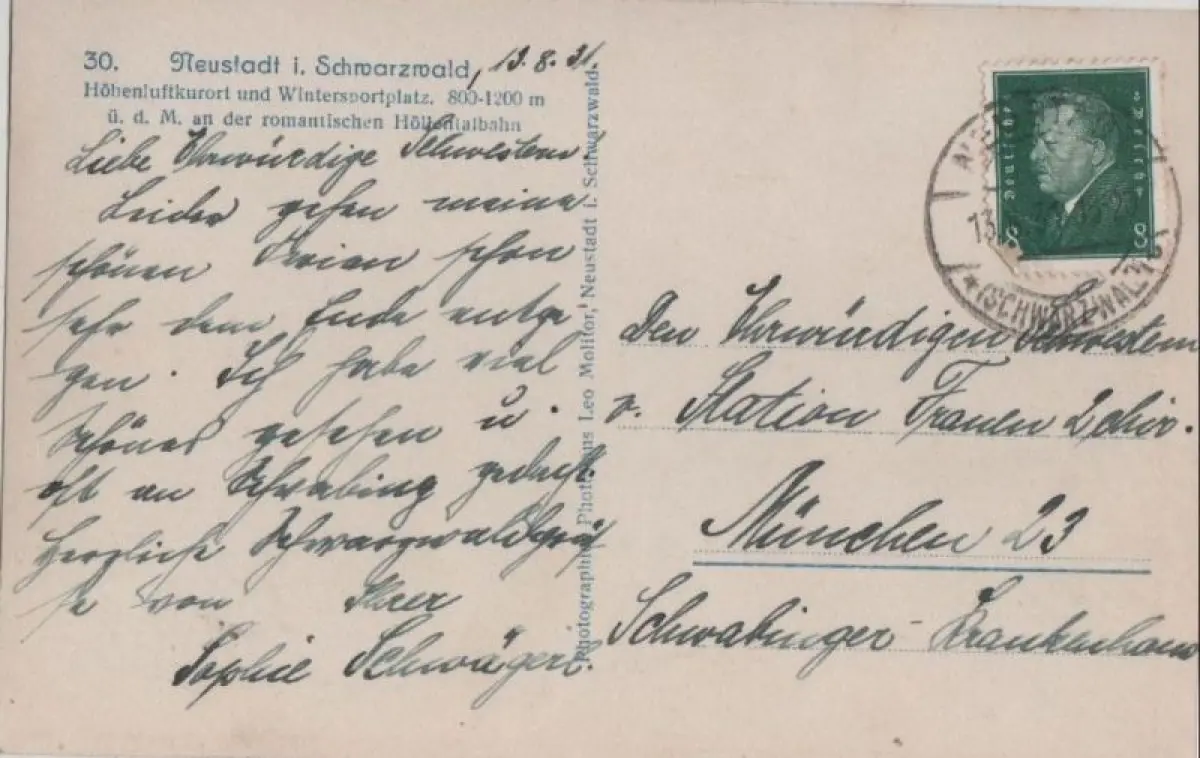 30. Neustadt i. Schwarzwald, 13. 8. 31.
Höhenluftkurort und Wintersportplatz. 800-1200 m
ü. d. M. an der romantischen Höllentalbahn
Liebe Ehrwürdige Schwestern
Leider gehen meine
schönen Ferien schon
sehr dem Ende entge
gen. Ich habe viel
Schönes gesehen u.
oft an Schwabing gedacht.
Herzliche Schwarzwaldgrü
ße von Ihrer
Sophie Schwägerl.
Photographie Photohaus Leo Molitor, Neustadt i. Schwarzwald.
Deutsches Reich
8 8
13.
(SCHWARZWALD)
Den Ehrwürdigen Schwestern
v. Station Frauen 2 chir.
München 23
Schwabinger-Krankenhaus